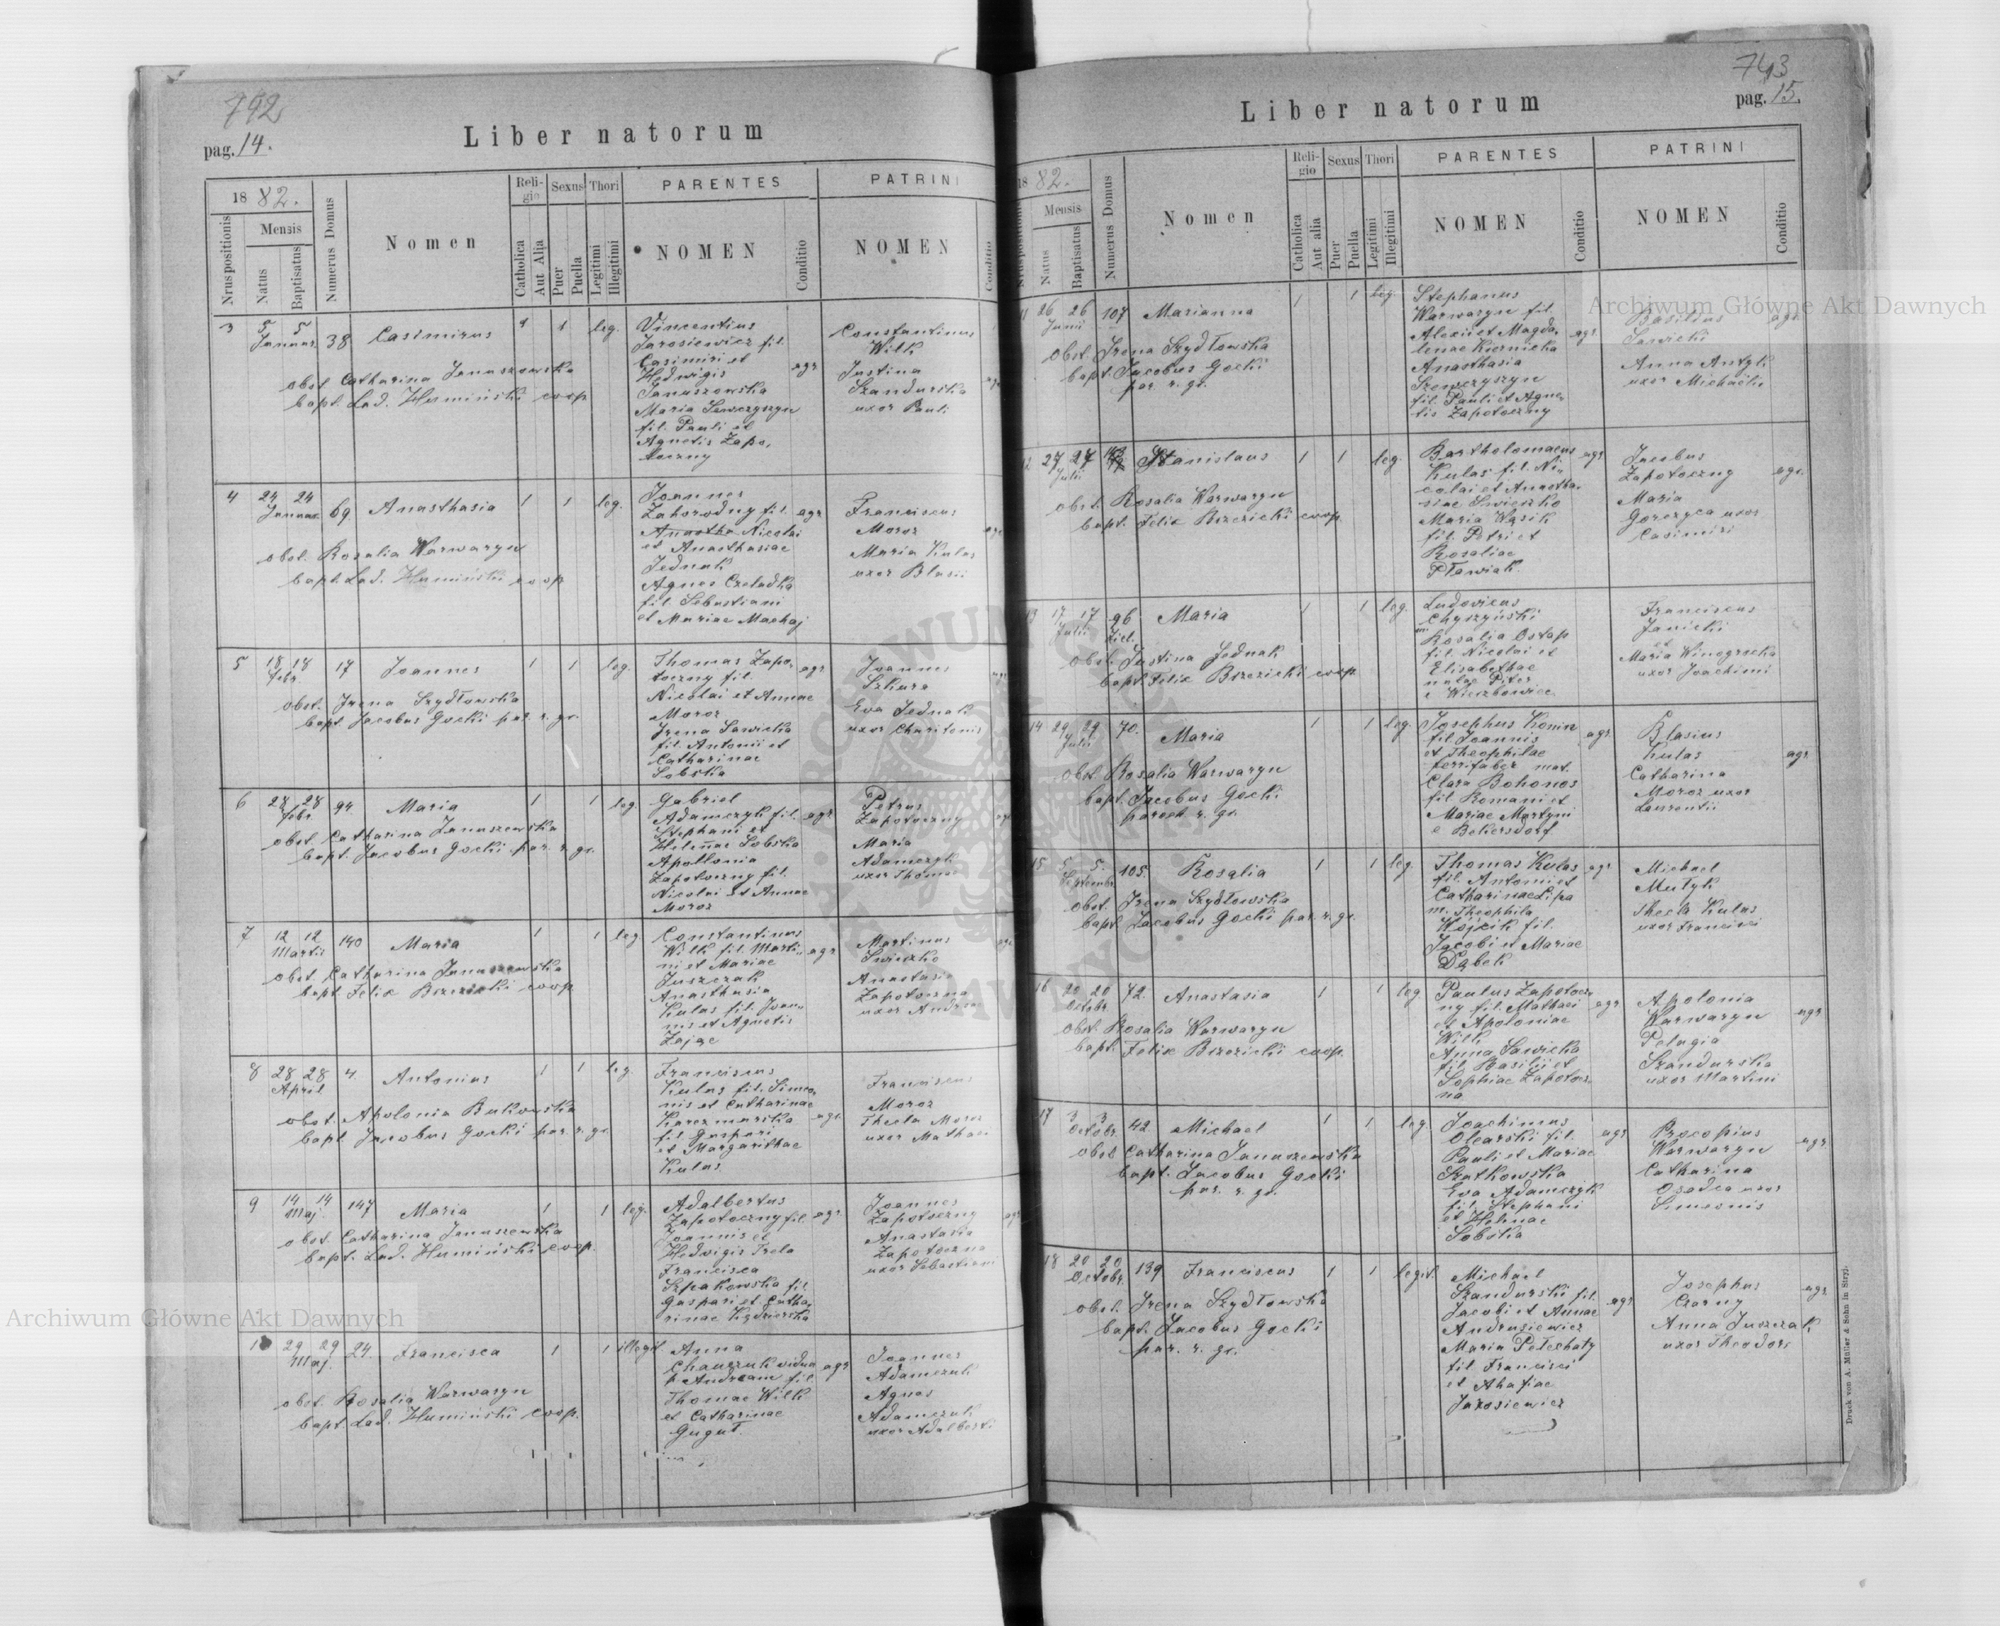 792
pag. 14.
Liber natorum
18 82.
Nrus positionis
Mensis
Natus
Baptisatus
Numerus Domus
Nomen
Religio
Catholica
Aut Alia
Sexus
Puer
Puella
Thori
Legitimi
Illegitimi
PARENTES
NOMEN
Conditio
PATRINI
NOMEN
Conditio
3 5 5 Januar. 38 Casimirus 1 1 leg.
obst. Catharina Januszewska
bapt. Lad. Humiński coop
Vincentius
Jarosiewicz fil.
Casimiri et
Hedwigis
Januszewska
Maria Szewczyszyn
fil. Pauli et
Agnetis Zapo,
toczny
agr
Constantinus
Wilk
Justina
Szandurska
uxor Pauli
4 24 24 Januar 69 Anasthasia 1 1 leg.
obst. Rosalia Warwaryn
bapt. Lad. Humiński coop
Joannes
Zahorodny fil.
Nicolai
et Anasthasiae
Jednak
Agnes Czeladka
fil. Sebastiani
et Mariae Machaj
agr
Franciscus
Moroz
Maria Kulas
uxor Blasii
5 18 18 febr. 17 Joannes 1 1 leg.
obst. Irena Szydłowska
bapt. Jacobus Gocki par. r. gr.
Thomas Zapo,
toczny fil.
Nicolai et Annae
Moroz
Irena Sawicka
fil. Antonii et
Catharinae
Sobska
agr
Joannes
Szkura
Eva Jednak
uxor Charitonis
6 28 28 Febr. 94 Maria 1 1 leg
obst. Catharina Januszewska
bapt. Jacobus Gocki par. r. gr.
Gabriel
Adamczyk fil.
Stephani et
Helenae Sobska
Apollonia
Zapotoczny fil.
Nicolai et Annae
Moroz
agr
Petrus
Zapotoczny
Maria
Adamczyk
uxor Thomae
7 12 12 Martii 140 Maria 1 1 leg
obst. Catharina Januszewska
bapt. Felix Brzezicki coop
Constantinus
Wilk fil. Marti,
ni et Mariae
Juszczak
Anasthasia
Kulas fil. Joan,
nis et Agnetis
Zając
agr
Martinus
Swiszko
Anastasia
Zapotoczna
uxor Andreae
8 28 28 April 4 Antonius 1 1 leg.
obst. Apolonia Bukowska
bapt. Jacobus Gocki par. r. gr.
Franciscus
Kulas fil. Simeo,
nis et Catharinae
Karczmarska
fil. Gaspari
et Margarithae
Kulas
agr.
Franciscus
Moroz
Thecla Moroz
uxor Mathaei
9 14 14 Maj. 147 Maria 1 1 leg.
obst. Catharina Januszewska
bapt. Lad. Humiński coop.
Adalbertus
Zapotoczny fil.
Joannis et
Hedwigis Trela
Francisca
Szpakowska fil.
Gaspari et Catha,
rinae Kędzierska
agr.
Joannes
Zapotoczny
Anastasia
Zapotoczna
uxor Sebastiani
10 29 29 Maj. 24. Francisca 1 1 illegit
obst. Rosalia Warwaryn
bapt. Lad. Humiński coop.
Anna
vidua
p. Andream fil
Thomae Wilk
et Catharinae
Gugut.
agr
Joannes
Adamczuk
Agnes
Adamczuk
uxor Adalberti
743
pag. 15.
Liber natorum
18 82.
Nrus positionis
Mensis
Natus
Baptisatus
Numerus Domus
Nomen
Religio
Catholica
Aut alia
Sexus
Puer
Puella
Thori
Legitimi
Illegitimi
PARENTES
NOMEN
Conditio
PATRINI
NOMEN
Conditio
11 26 26 Junii 107 Marianna 1 1 leg.
obst. Irena Szydłowska
bapt. Jacobus Gocki
par. r. gr.
Stephanus
Warwaryn fil.
Alexii et Magda,
lenae Kiernicka
Anasthasia
Szewczyszyn
fil. Pauli et Agne,
tis Zapotoczny
agr
Basilius
Sawicki
Anna Antyk
uxor Michaelis
agr.
12 27 27 Julii Stanislaus 1 1 leg.
obst. Rosalia Warwaryn
bapt. Felix Brzezicki coop.
Bartholomaeus
Kulas fil. Ni,
colai et Anastha,
siae Swiszko
Maria Wąsik
fil. Petri et
Rosaliae
Pławiak
agr
Jacobus
Zapotoczny
Maria
Gorczyca uxor
Casimiri
agr.
13 17 17 Julii 96 Maria 1 1 leg.
obst. Justina Jednak
bapt. Felix Brzezicki coop.
Ludovicus
Chyszyński
Rosalia Ostap
fil. Nicolai et
Elisabethae
e Wierzbowiec
Franciscus
Janicki
et
Maria Winogrocka
uxor Joachimi
14 29 29 Julii 70. Maria 1 1 leg.
obst. Rosalia Warwaryn
bapt. Jacobus Gocki
paroch r. gr.
Josephus Konin
fil. Joannis
et Theophilae
ferrifaber mat.
Clara Bohonos
fil Romani et
Mariae Martyni
e Bekersdorf
agr
Blasius
Kulas
Catharina
Moroz uxor
Laurentii
agr
15 5 5. Septembr. 105. Rosalia 1 1 leg.
obst. Irena Szydłowska
bapt. Jacobus Gocki par. r. gr.
Thomas Kulas
fil. Antoni et
Catharinae Lipa
m. Theophila
Wojcik fil.
Jacobi et Mariae
Dąbek
agr
Michael
Mutyk
Thecla Kulas
uxor Francisci
16 20 20 Octobr. 72. Anastasia 1 1 leg.
obst. Rosalia Warwaryn
bapt. Felix Brzezicki coop.
Paulus Zapotocz,
ny fil. Mathaei
et Apoloniae
Wilk
Anna Sawicka
fil. Basilii et
Sophiae Zapotocz,
na
agr
Apolonia
Warwaryn
Pelagia
Szandurska
uxor Martini
agr
17 3 3 Octobr. 42. Michael 1 1 leg
obst Catharina Januszewska
bapt. Jacobus Gocki
par. r. gr.
Joachimus
Olearski fil.
Pauli et Mariae
Szatkowska
Eva Adamczyk
fil. Stephani
et Helenae
Sobska
agr
Procopius
Warwaryn
Catharina
Osadca uxor
Simeonis
agr
18 20 20 Octobr. 139 Franciscus 1 1 legit.
obst. Irena Szydłowska
bapt. Jacobus Gocki
par. r. gr.
Michael
Szandurski fil.
Jacobi et Annae
Andrusiewicz
Maria Pełechaty
fil Francisci
et Ahafiae
Jarosiewicz
agr
Josephus
Czarny
Anna Juszczak
uxor Theodori
agr.
Druck von A. Müller & Sohn in Stryj.
Archiwum Główne Akt Dawnych
Archiwum Główne Akt Dawnych